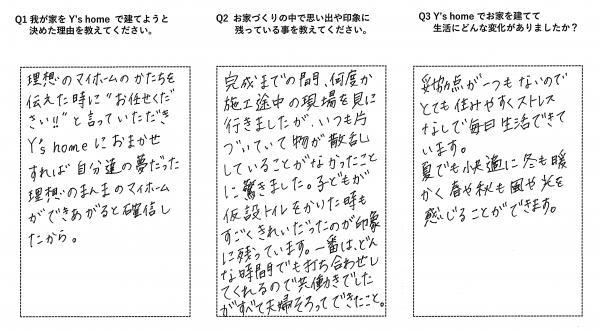 Q1 我が家を Y's home で建てようと
決めた理由を教えてください。
理想のマイホームのかたちを
伝えた時に"お任せくだ
さい!!"と言っていただき
Y's homeにおまかせ
すれば自分達の夢だった
理想のまんまのマイホーム
ができあがると確信し
たから。
Q2 お家づくりの中で思い出や印象に
残っている事を教えてください。
完成までの間、何度か
施工途中の現場を見に
行きましたが、いつも片
づいていて物が散乱
していることがなかったこと
に驚きました。子どもが
仮設トイレをかりた時も
すごくきれいだったのが印象
に残っています。一番は、どん
な時間でも打ち合わせし
てくれるので共働きでした
がすべて夫婦そろってできたこと。
Q3 Y's home でお家を建てて
生活にどんな変化がありましたか？
妥協点が一つもないので
とても住みやすくストレス
なしで毎日生活できて
います。
夏でも快適に冬も暖
かく春や秋も風や光を
感じることができます。